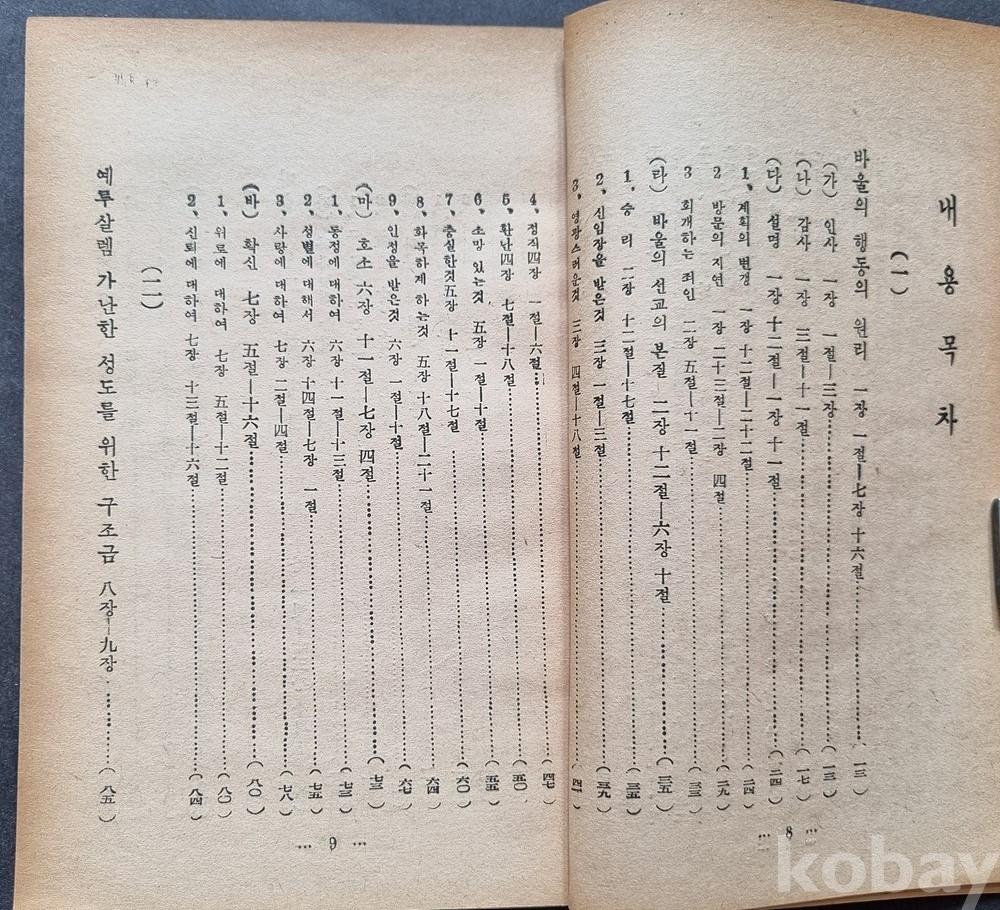 내용목차
(一)
바울의 행동의 원리 一장 一절—七장 十六절 (一三)
(가) 인사 一장 一절—三장 (一三)
(나) 감사 一장 三절—十一절 (一七)
(다) 설명 一장 十二절—一장 十一절 (二四)
1、계획의 변갱 一장 十二절—二十二절 (二四)
2 방문의 지연 一장 二十三절—二장 四절 (二九)
3 회개하는 죄인 二장 五절—十一절 (三三)
(라) 바울의 선교의 본질 二장 十二절—六장 十절 (三五)
1、승리 二장 十二절—十七절 (三五)
2、신임장을 받은것 三장 一절—三절 (三九)
3、영광스러운것 三장 四절—十八절
… 8 …
4、정직四장 一절—六절 (四七)
5、환난四장 七절—十八절 (五〇)
6、소망 있는것 五장 一절—十절 (五五)
7、충실한것五장 十一절—十七절 (六〇)
8、화목하게 하는것 五장 十八절—二十一절 (六四)
9、인정을 받은것 六장 一절—十절 (六七)
(마) 호소 六장 十一절—七장 四절 (七三)
1、동정에 대하여 六장 十一절—十三절 (七三)
2、성별에 대해서 六장 十四절—七장 一절 (七五)
3、사랑에 대하여 七장 二절—四절 (七八)
(바) 확신 七장 五절—十六절 (八〇)
1、위로에 대하여 七장 五절—十二절 (八〇)
2、신뢰에 대하여 七장 十三절—十六절 (八四)
(二)
예루살렘 가난한 성도를 위한 구조금 八장—九장 (八五)
… 9 …
kobay